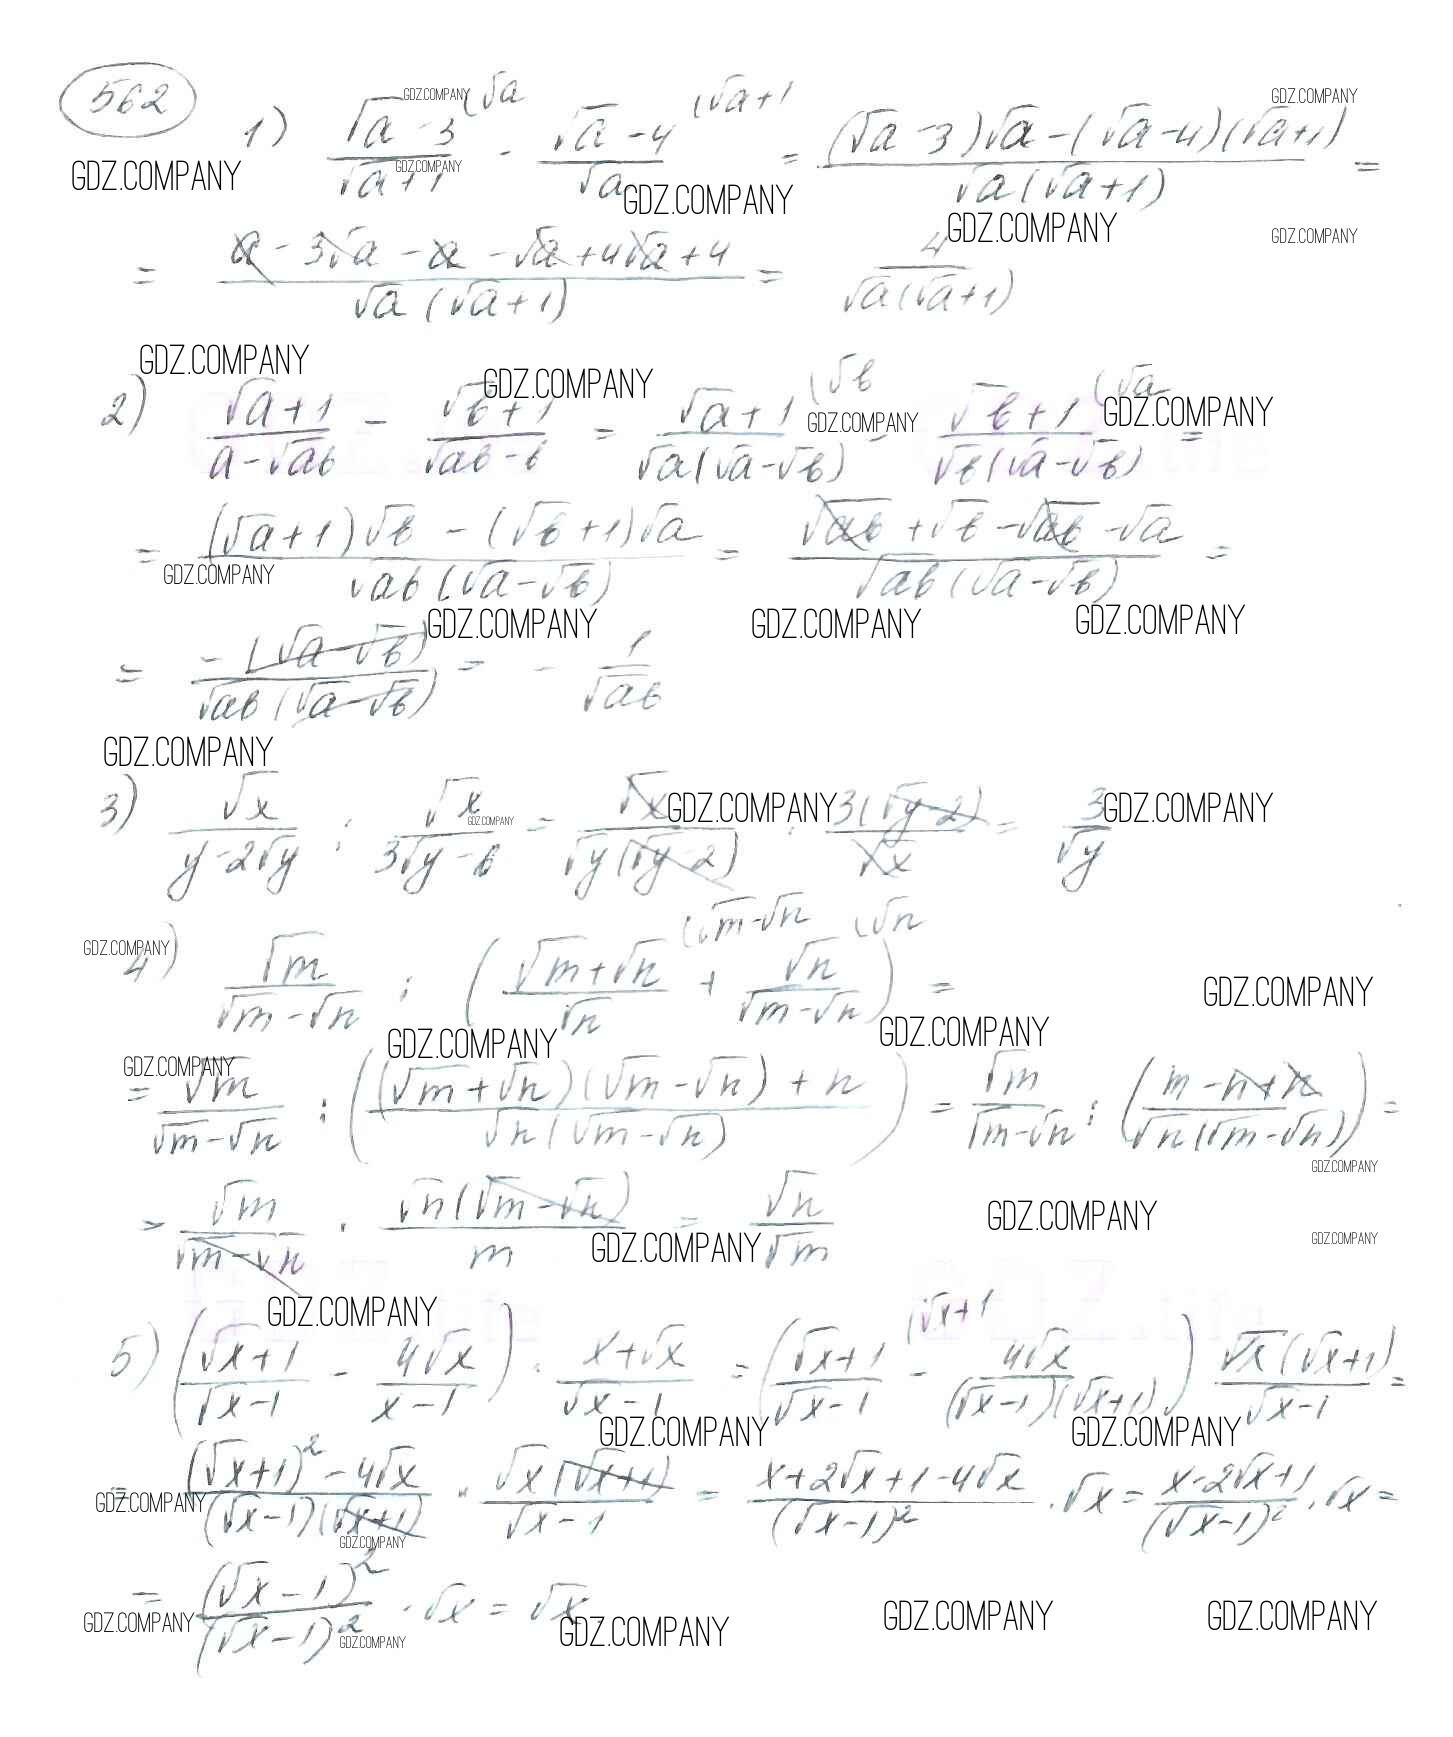 562
1) (√a - 3)/(√a + 1) (√a - (√a - 4)/√a (√a+1 = ((√a - 3)√a - (√a - 4)(√a+1))/(√a(√a+1)) =
= (a - 3√a - a - √a + 4√a + 4)/(√a(√a+1)) = 4/(√a(√a+1))
2) (√a+1)/(a - √ab) - (√b+1)/(√ab - b) = (√a+1)/(√a(√a-√b)) (√b - (√b+1)/(√b(√a-√b)) (√a =
= ((√a+1)√b - (√b+1)√a)/(√ab(√a-√b)) = (√ab + √b - √ab - √a)/(√ab(√a-√b)) =
= -(√a-√b)/(√ab(√a-√b)) = - 1/√ab
3) √x/(y-2√y) : √x/(3√y-6) = √x/(√y(√y-2)) · 3(√y-2)/√x = 3/√y
4) √m/(√m-√n) : ((√m+√n)/√n (√m-√n + √n/(√m-√n) (√n) =
= √m/(√m-√n) : (((√m+√n)(√m-√n)+n)/(√n(√m-√n))) = √m/(√m-√n) : ((m-n+n)/(√n(√m-√n))) =
= √m/(√m-√n) · √n(√m-√n)/m = √n/√m
5) ((√x+1)/(√x-1) - 4√x/(x-1)) · (x+√x)/(√x-1) = ((√x+1)/(√x-1) (√x+1 - 4√x/((√x-1)(√x+1))) √x(√x+1)/(√x-1) =
= ((√x+1)² - 4√x)/((√x-1)(√x+1)) · √x(√x+1)/(√x-1) = (x+2√x+1-4√x)/(√x-1)² · √x = (x-2√x+1)/(√x-1)² · √x =
= (√x-1)²/(√x-1)² · √x = √x
GDZ.COMPANY